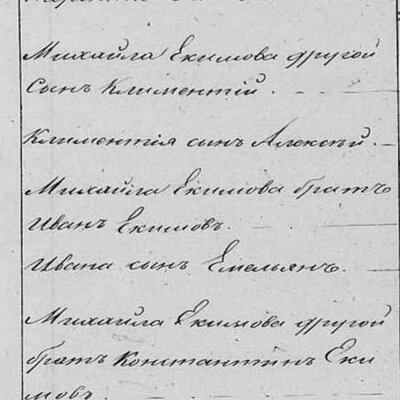 Михайла Екимова другой
Сынъ Климентій.
Климентія сынъ Алексѣй.
Михайла Екимова братъ
Иванъ Екимовъ.
Ивана сынъ Емельянъ.
Михайла Екимова другой
братъ Константинъ Еки
мовъ.